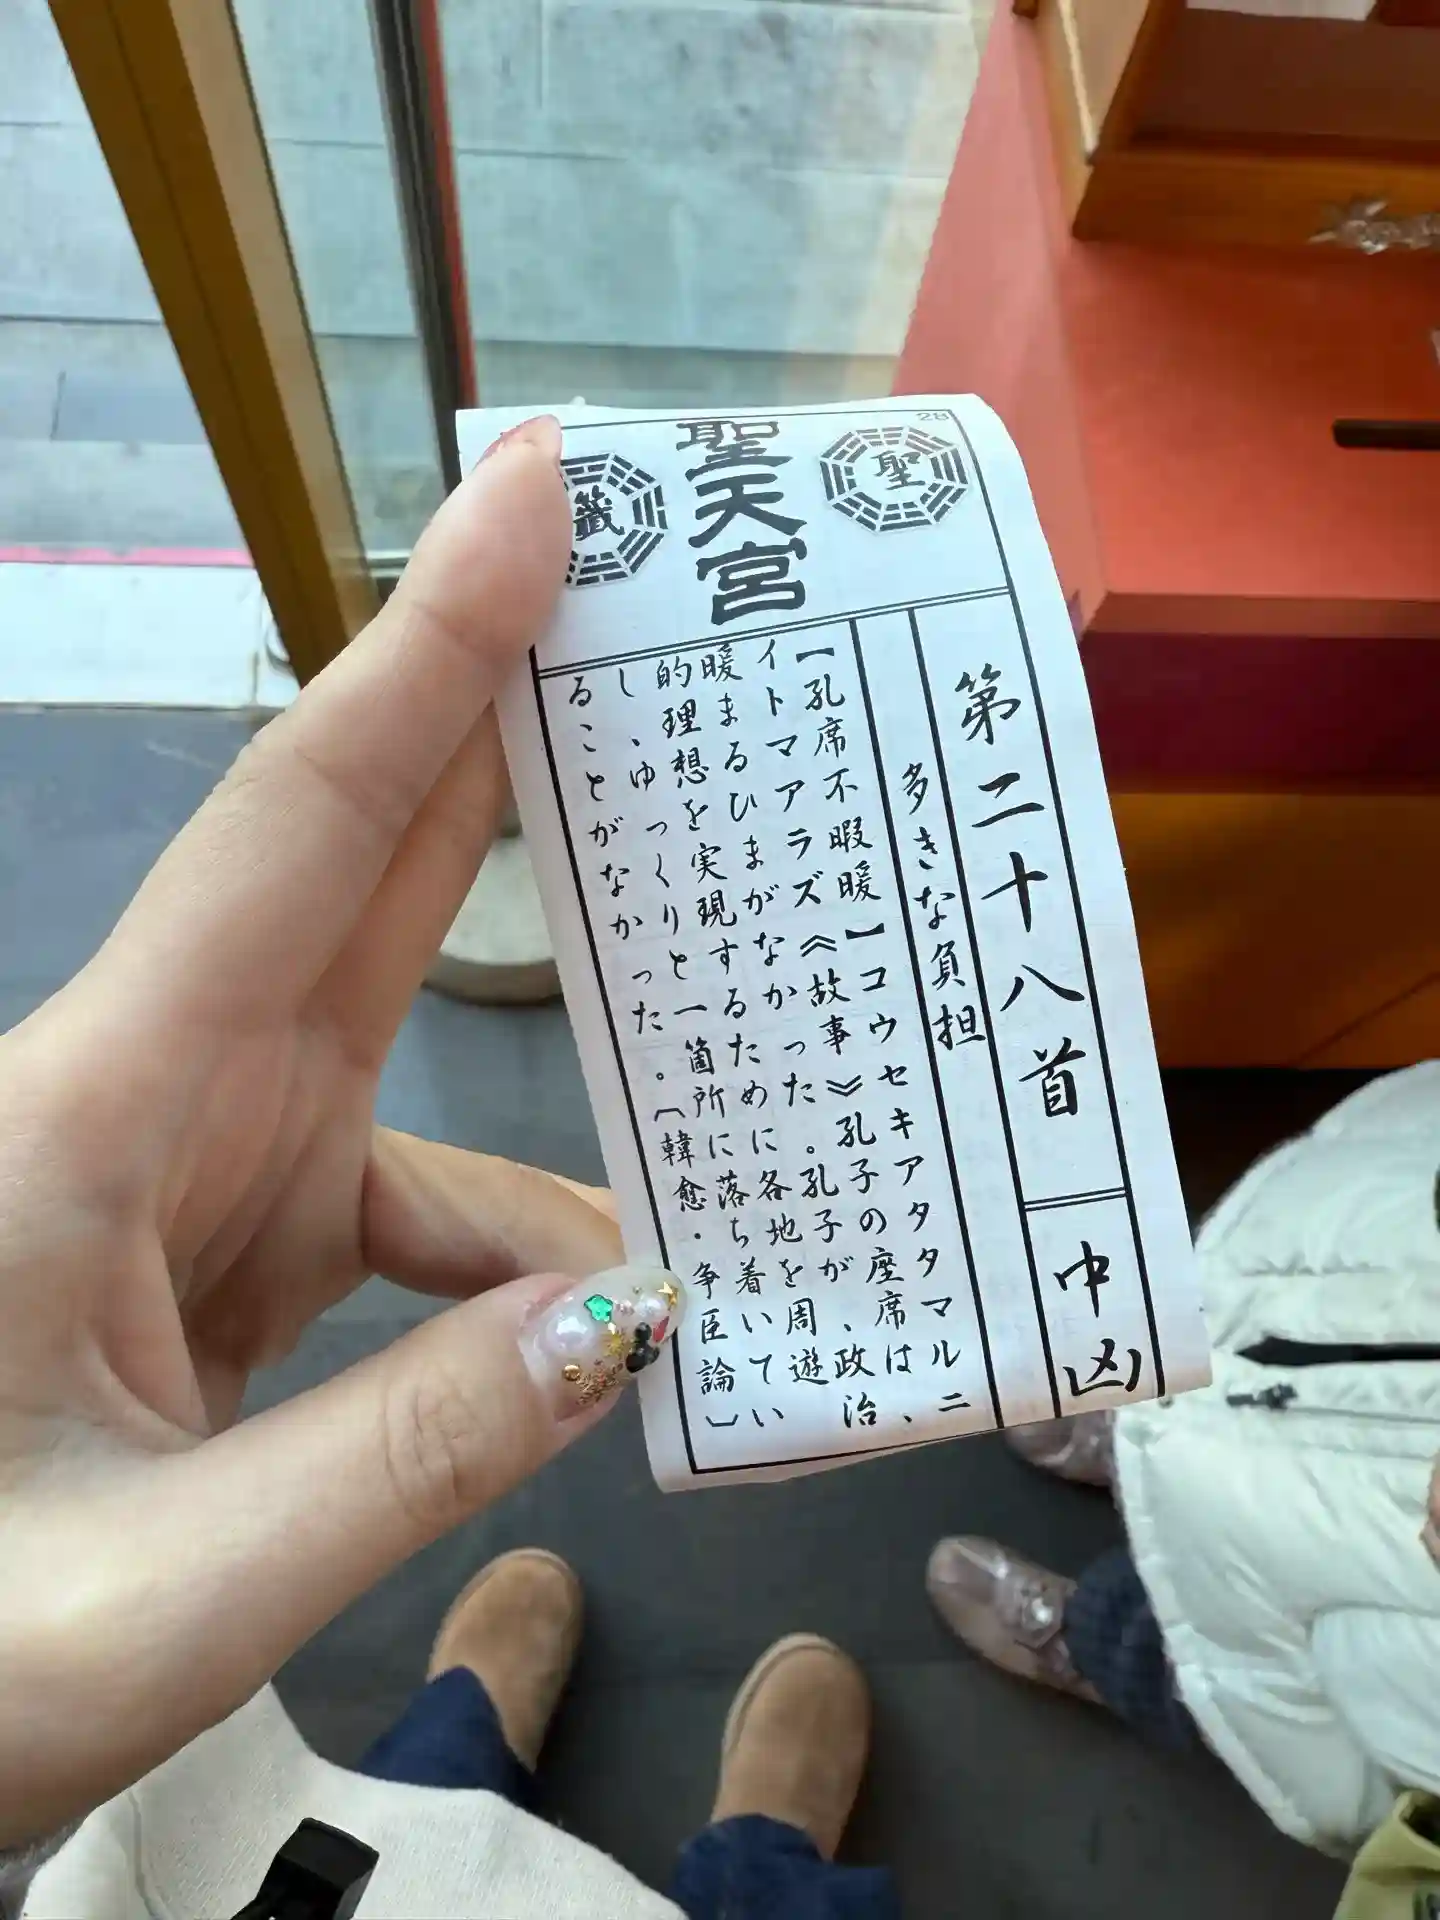 28
聖
聖天宮
籤
第二十八首
中凶
多きな負担
【孔席不暇暖】コウセキアタタマルニ
イトマアラズ《故事》孔子の座席は、
暖まるひまがなかった。孔子が、政治
的理想を実現するために各地を周遊
し、ゆっくりと一箇所に落ち着いてい
ることがなかった。〔韓愈・争臣論〕